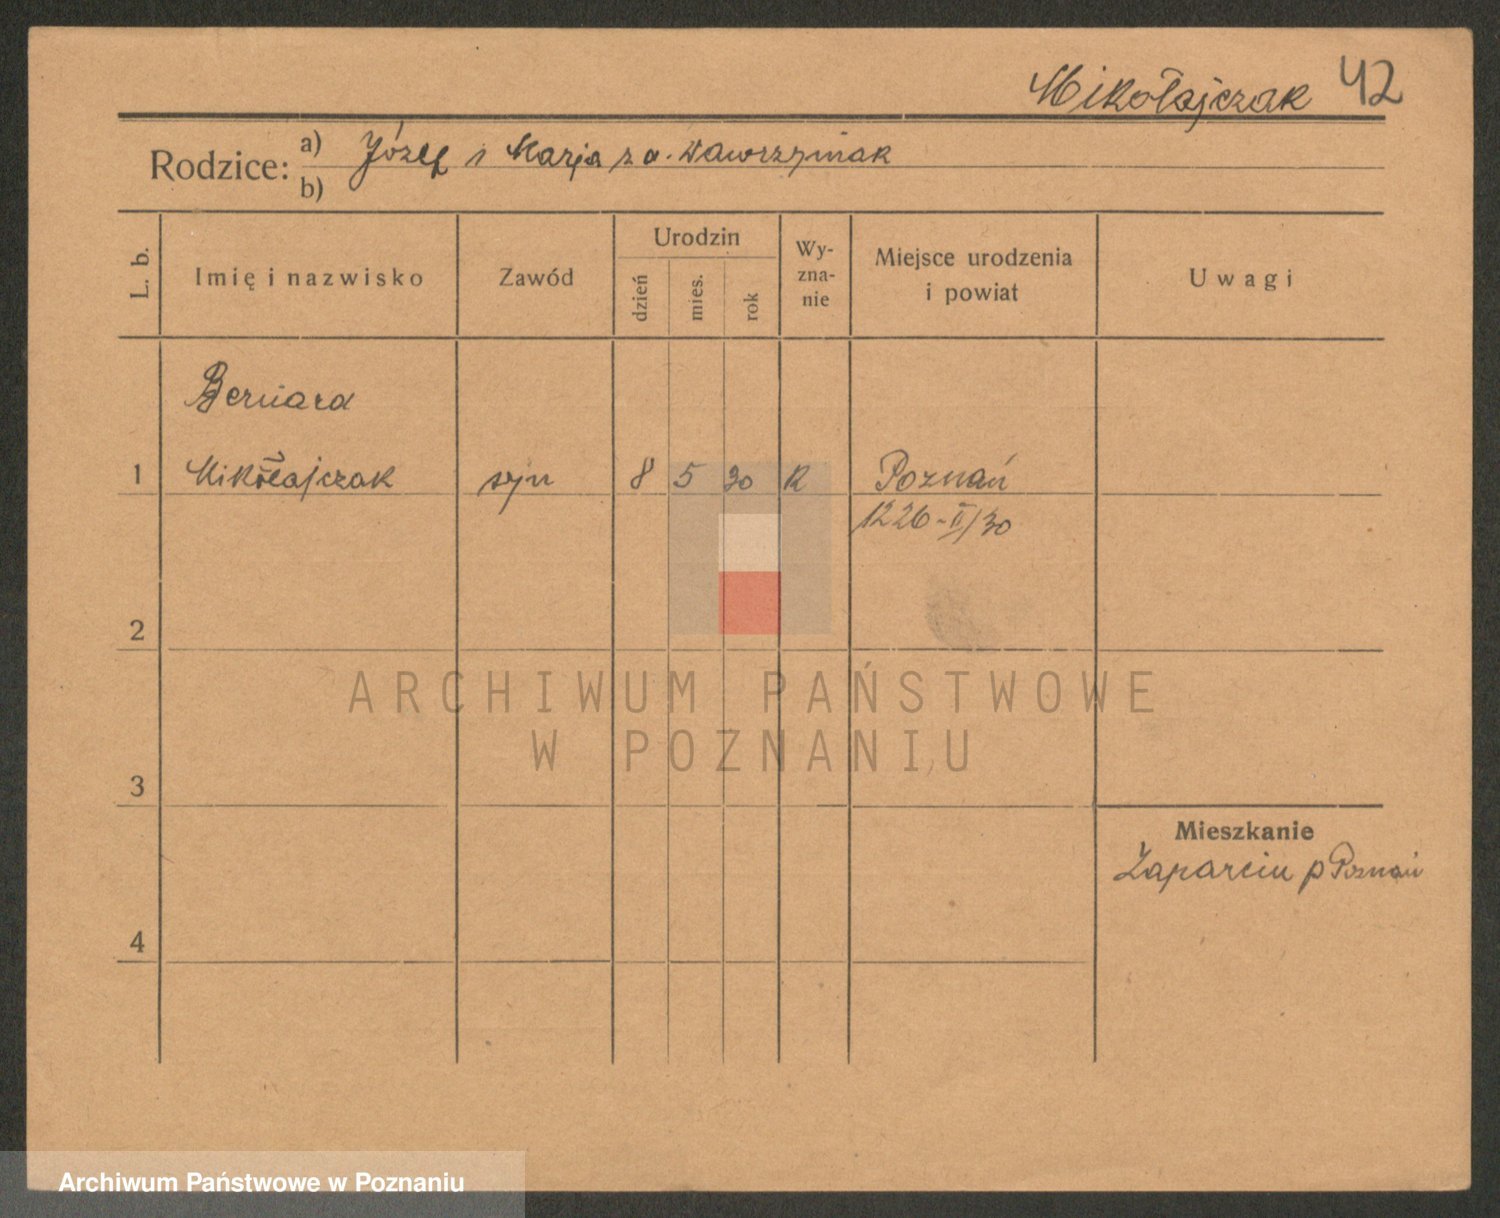 Mikołajczak 42
Rodzice: a) Józef i Marja z d. Wawrzyniak
b)
L. b.
Imię i nazwisko
Zawód
Urodzin
dzień
mies.
rok
Wy-
zna-
nie
Miejsce urodzenia
i powiat
Uwagi
Bernard
1 Mikołajczak syn 8 5 30 k Poznań
1226-II/30
2
ARCHIWUM PAŃSTWOWE
W POZNANIU
3
Mieszkanie
p Poznań
4
Archiwum Państwowe w Poznaniu